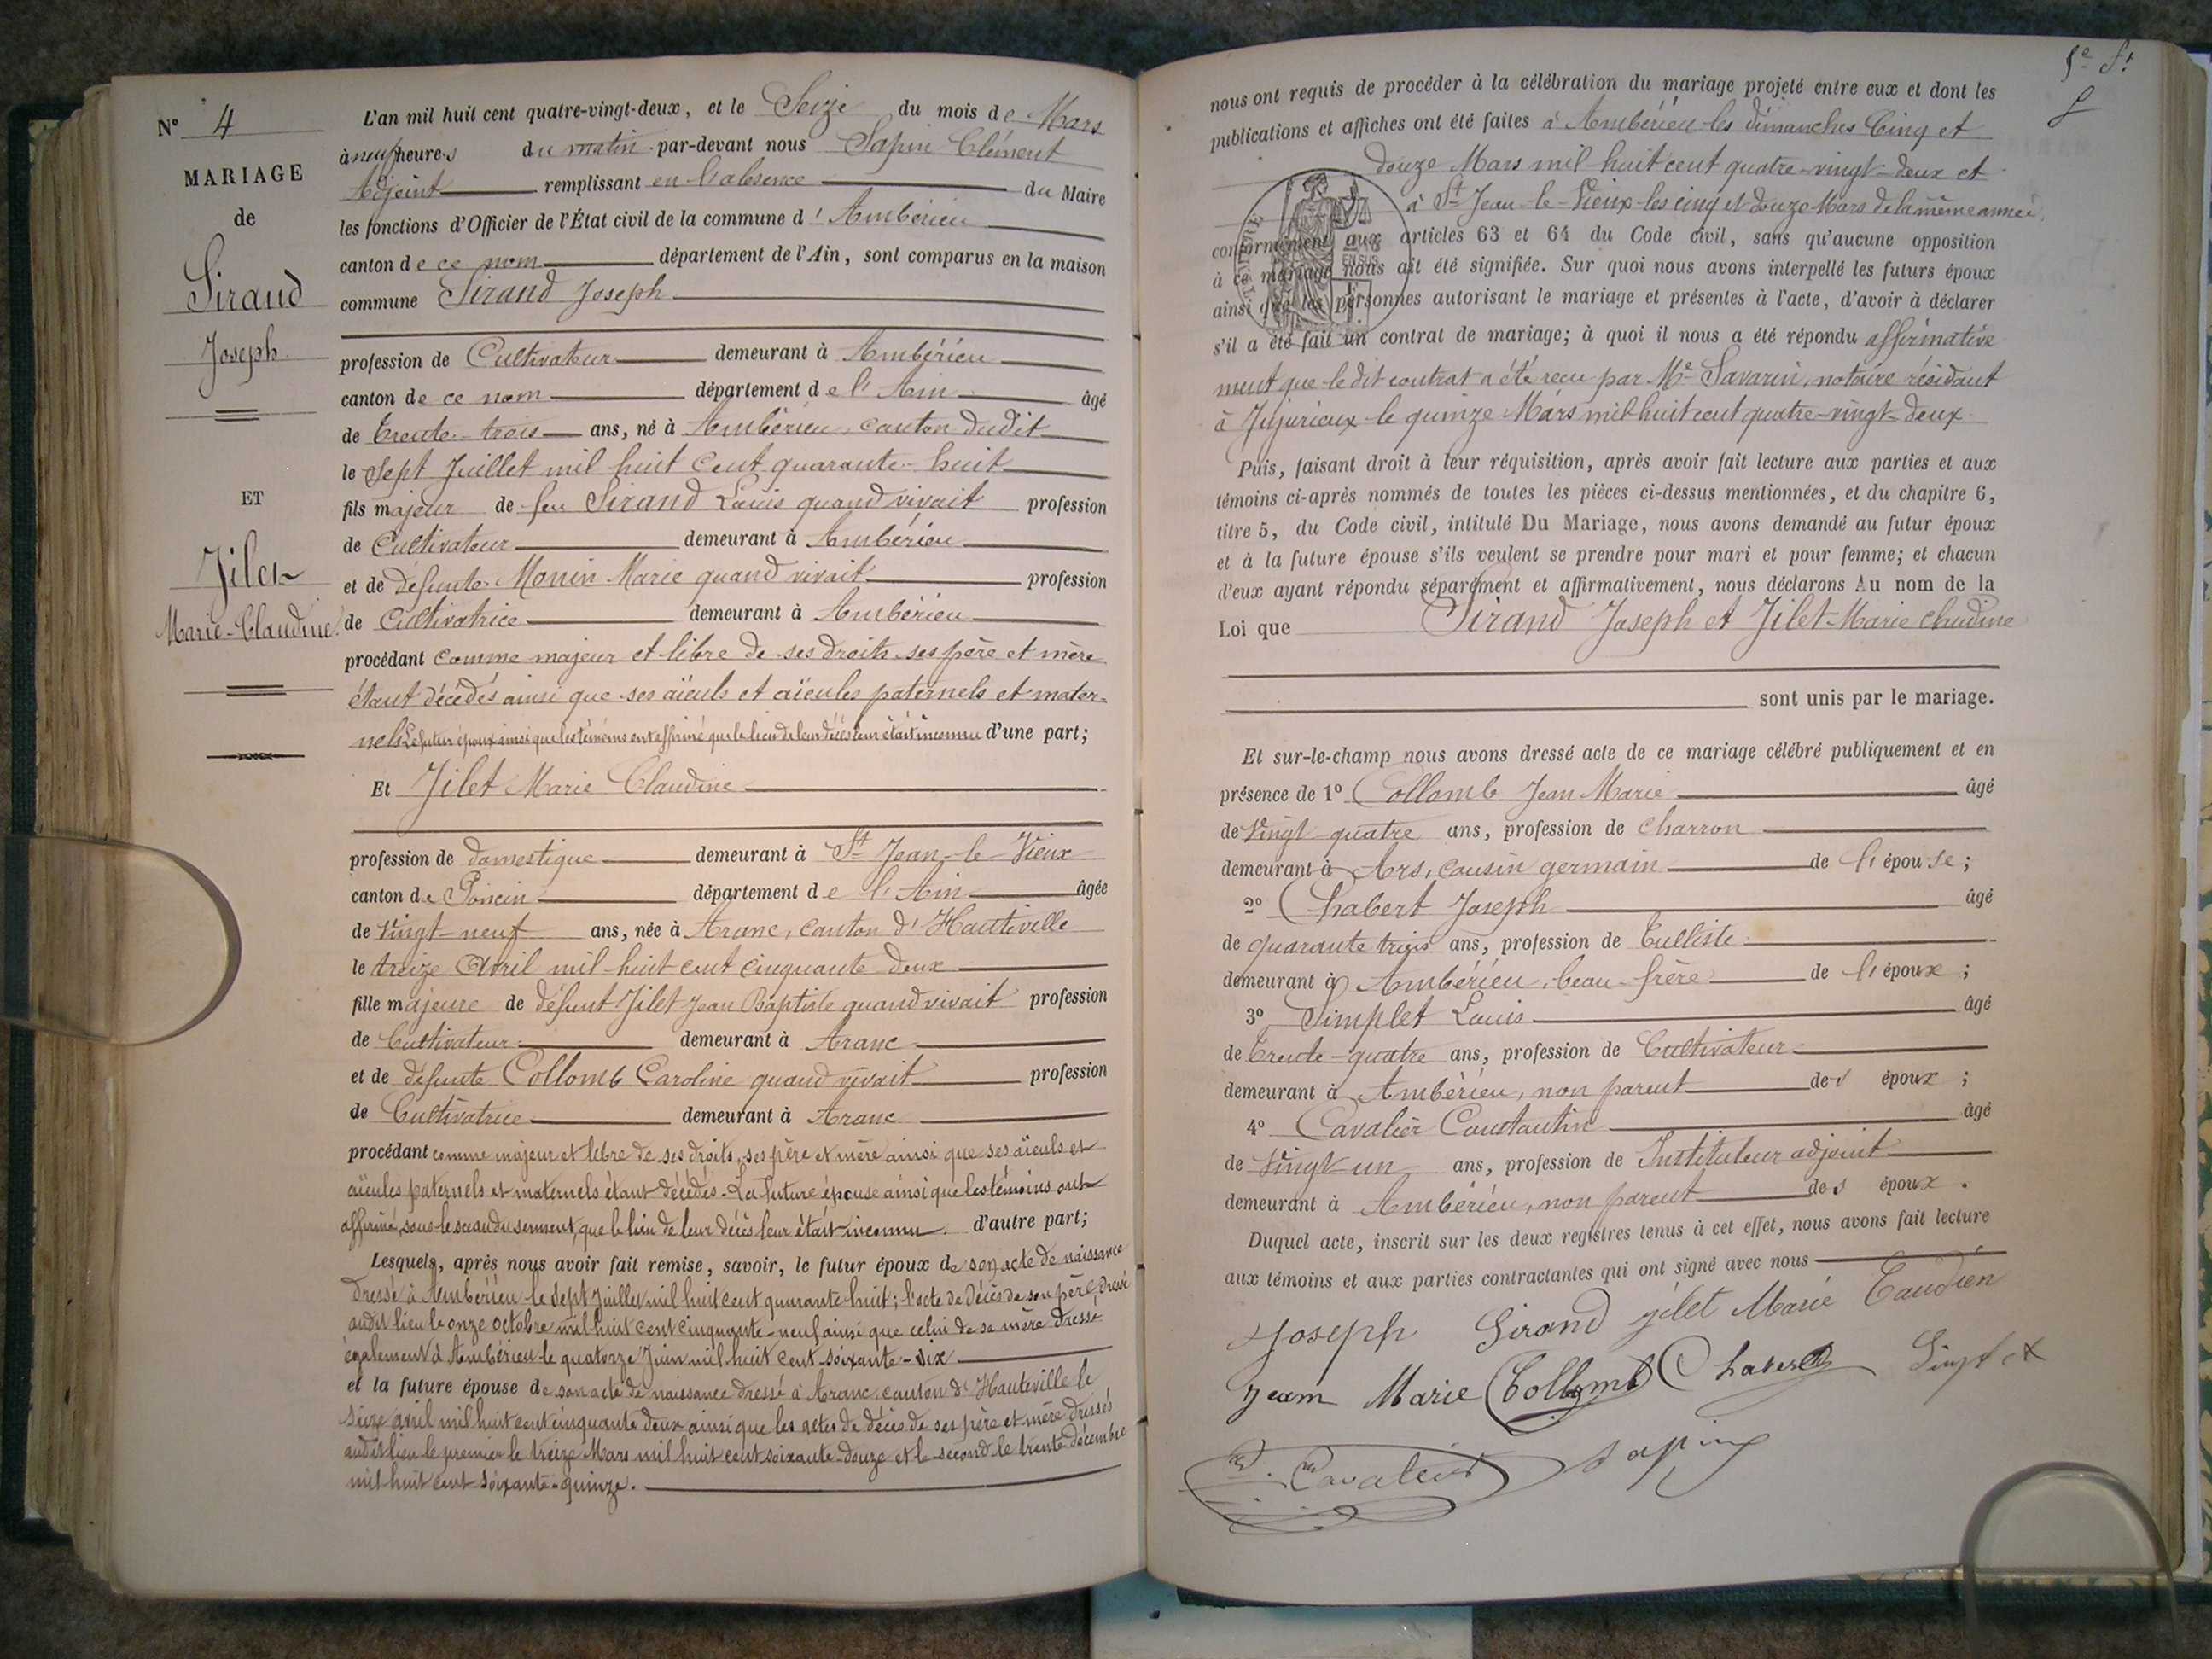 N° 4
MARIAGE
de
Sirand
Joseph
ET
Jilet
Marie-Claudine
L'an mil huit cent quatre-vingt-deux, et le Seize du mois de Mars
à neuf heures du matin par-devant nous Sapin Clément
Adjoint remplissant en l'absence du Maire
les fonctions d'Officier de l'État civil de la commune d'Ambérieu
canton de ce nom département de l'Ain, sont comparus en la maison
commune Sirand Joseph
profession de Cultivateur demeurant à Ambérieu
canton de ce nom département de l'Ain âgé
de trente-trois ans, né à Ambérieu, canton dudit
le Sept Juillet mil huit cent quarante-huit
fils majeur de feu Sirand Louis quand vivait profession
de Cultivateur demeurant à Ambérieu
et de défunte Monin Marie quand vivait profession
de Cultivatrice demeurant à Ambérieu
procédant comme majeur et libre de ses droits ses père et mère
étant décédés ainsi que ses aïeuls et aïeules paternels et mater-
nels Le futur époux ainsi que les témoins ont affirmé que le lieu de leur décès leur était inconnu d'une part;
Et Jilet Marie Claudine
profession de domestique demeurant à St Jean-le-Vieux
canton de Poncin département de l'Ain âgée
de Vingt-neuf ans, née à Aranc, canton d'Hauteville
le treize Avril mil huit cent cinquante deux
fille majeure de défunt Jilet Jean Baptiste quand vivait profession
de Cultivateur demeurant à Aranc
et de défunte Collomb Caroline quand vivait profession
de Cultivatrice demeurant à Aranc
procédant comme majeur et libre de ses droits, ses père et mère ainsi que ses aïeuls et
aïeules paternels et maternels étant décédés. La future épouse ainsi que les témoins ont
affirmé, sous le sceau du serment, que le lieu de leur décès leur était inconnu. d'autre part;
Lesquels, après nous avoir fait remise, savoir, le futur époux de son acte de naissance
dressé à Ambérieu le sept Juillet mil huit cent quarante huit; l'acte de décès de son père dressé
audit lieu le onze octobre mil huit cent cinquante-neuf ainsi que celui de sa mère dressé
également à Ambérieu le quatorze Juin mil huit cent soixante-six
et la future épouse de son acte de naissance dressé à Aranc canton d'Hauteville le
avril mil huit cent cinquante deux ainsi que les actes de décès de ses père et mère dressés
audit lieu le premier le treize Mars mil huit cent soixante-douze et le second le trente décembre
mil huit cent soixante-quinze.
nous ont requis de procéder à la célébration du mariage projeté entre eux et dont les
publications et affiches ont été faites à Ambérieu les dimanches Cinq et
douze Mars mil huit cent quatre-vingt-deux et
à St Jean-le-Vieux les cinq et douze Mars de la même année
conformément aux articles 63 et 64 du Code civil, sans qu'aucune opposition
à ce mariage nous ait été signifiée. Sur quoi nous avons interpellé les futurs époux
ainsi que les personnes autorisant le mariage et présentes à l'acte, d'avoir à déclarer
s'il a été fait un contrat de mariage; à quoi il nous a été répondu affirmative
ment que ledit contrat a été reçu par Me Savarin, notaire résidant
à Jujurieux le quinze Mars mil huit cent quatre-vingt-deux
Puis, faisant droit à leur réquisition, après avoir fait lecture aux parties et aux
témoins ci-après nommés de toutes les pièces ci-dessus mentionnées, et du chapitre 6,
titre 5, du Code civil, intitulé Du Mariage, nous avons demandé au futur époux
et à la future épouse s'ils veulent se prendre pour mari et pour femme; et chacun
d'eux ayant répondu séparément et affirmativement, nous déclarons Au nom de la
Loi que Sirand Joseph et Jilet Marie Claudine
sont unis par le mariage.
Et sur-le-champ nous avons dressé acte de ce mariage célébré publiquement et en
présence de 1° Collomb Jean Marie âgé
de Vingt-quatre ans, profession de charron
demeurant à Ars, cousin germain de l'épouse;
2° Chabert Joseph âgé
de quarante trois ans, profession de Tulliste
demeurant à Ambérieu, beau-frère de l'époux;
3° Simplet Louis âgé
de Trente-quatre ans, profession de Cultivateur
demeurant à Ambérieu, non parent des époux;
4° Cavalier Constantin âgé
de Vingt un ans, profession de Instituteur adjoint
demeurant à Ambérieu, non parent des époux.
Duquel acte, inscrit sur les deux registres tenus à cet effet, nous avons fait lecture
aux témoins et aux parties contractantes qui ont signé avec nous
Joseph Sirand jilet Marie
Jean Marie Collomb Chabert Simplet
Cavalier Sapin